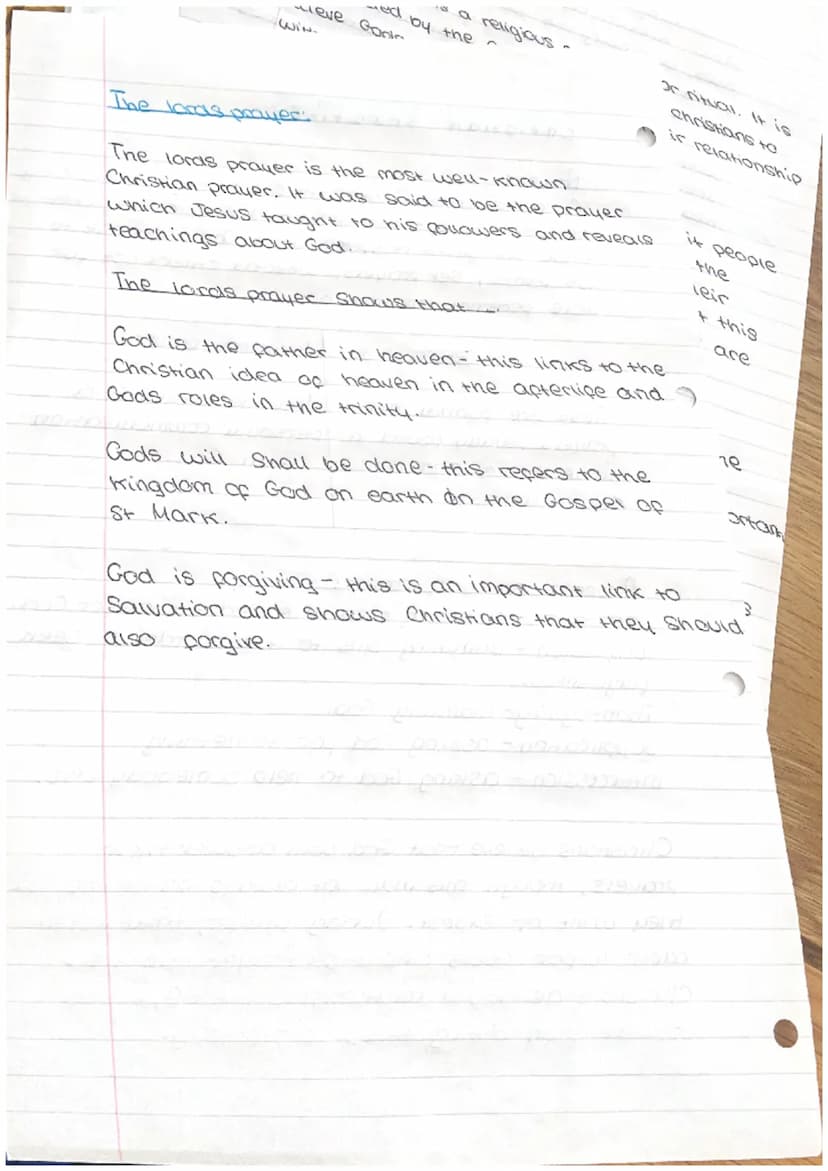 a religious
by the
The lords prayer.
The lords prayer is the most well-known
Christian prayer. It was said to be the prayer
which Jesus taught to his followers and reveals
teachings about God.
The lords prayer shows that ...
God is the father in heaven - this links to the
Christian idea of heaven in the afterlife and
Gods roles in the trinity.
Gods will shall be done - this refers to the
kingdom of God on earth in the Gospel of
St Mark.
God is forgiving - this is an important link to
Salvation and shows Christians that they should
also forgive.
or ritual. It is
Christians to
ir relationship
it people
the
leir
t this
are
re
ortan